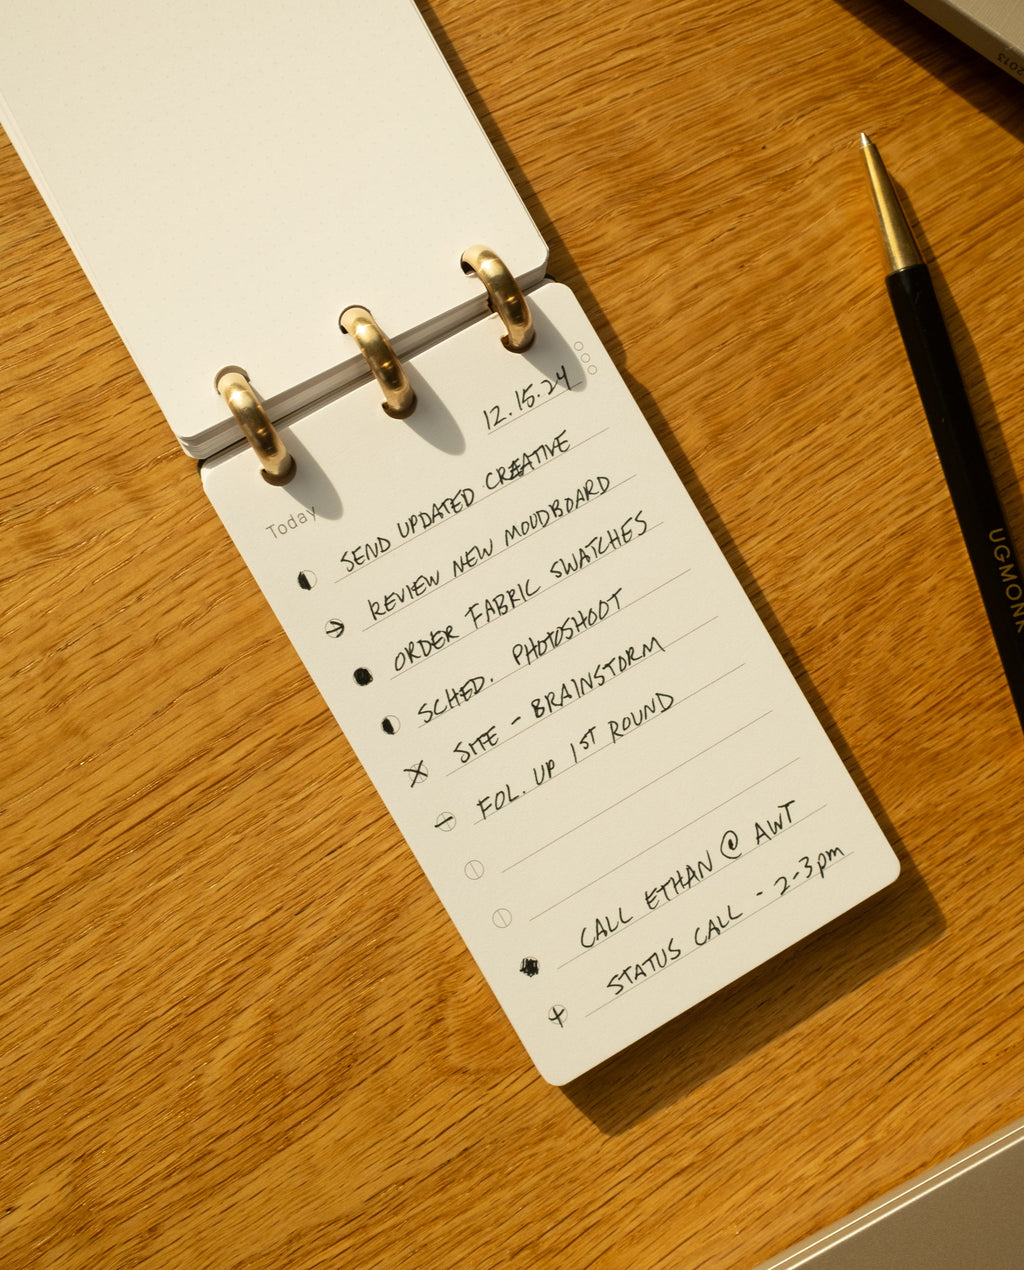 2013
12.15.24
Today
SEND UPDATED CREATIVE
REVIEW NEW MOODBOARD
ORDER FABRIC SWATCHES
SCHED. PHOTOSHOOT
SITE - BRAINSTORM
FOL. UP 1ST ROUND
CALL ETHAN @ AWT
STATUS CALL - 2-3pm
UGMONK